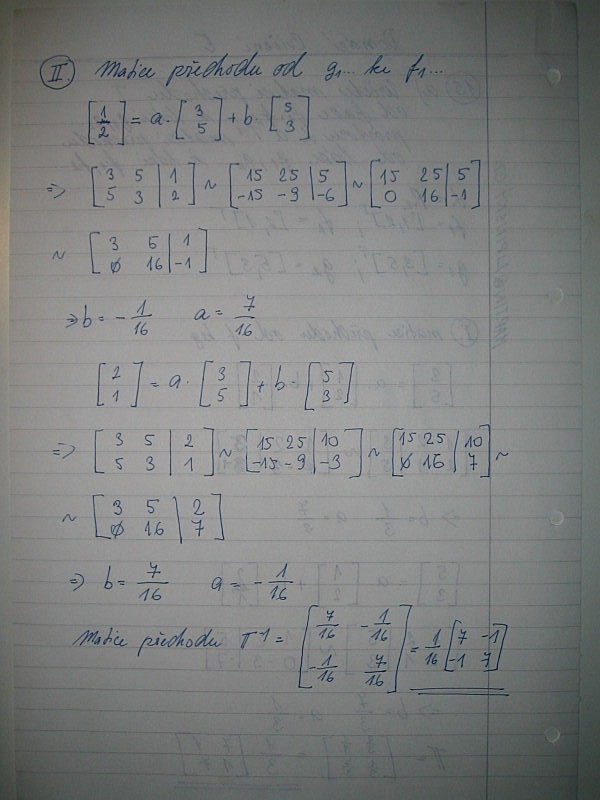 II. Matice přechodu od g₁... ke f₁...
[1 2] = a · [3 5] + b · [5 3]
=> [3 5 | 1; 5 3 | 2] ~ [15 25 | 5; -15 -9 | -6] ~ [15 25 | 5; 0 16 | -1]
~ [3 5 | 1; 0 16 | -1]
=> b = - 1/16 a = 7/16
[2 1] = a · [3 5] + b · [5 3]
=> [3 5 | 2; 5 3 | 1] ~ [15 25 | 10; -15 -9 | -3] ~ [15 25 | 10; 0 16 | 7] ~
~ [3 5 | 2; 0 16 | 7]
=> b = 7/16 a = - 1/16
Matice přechodu T⁻¹ = [7/16 -1/16; -1/16 7/16] = 1/16 [7 -1; -1 7]